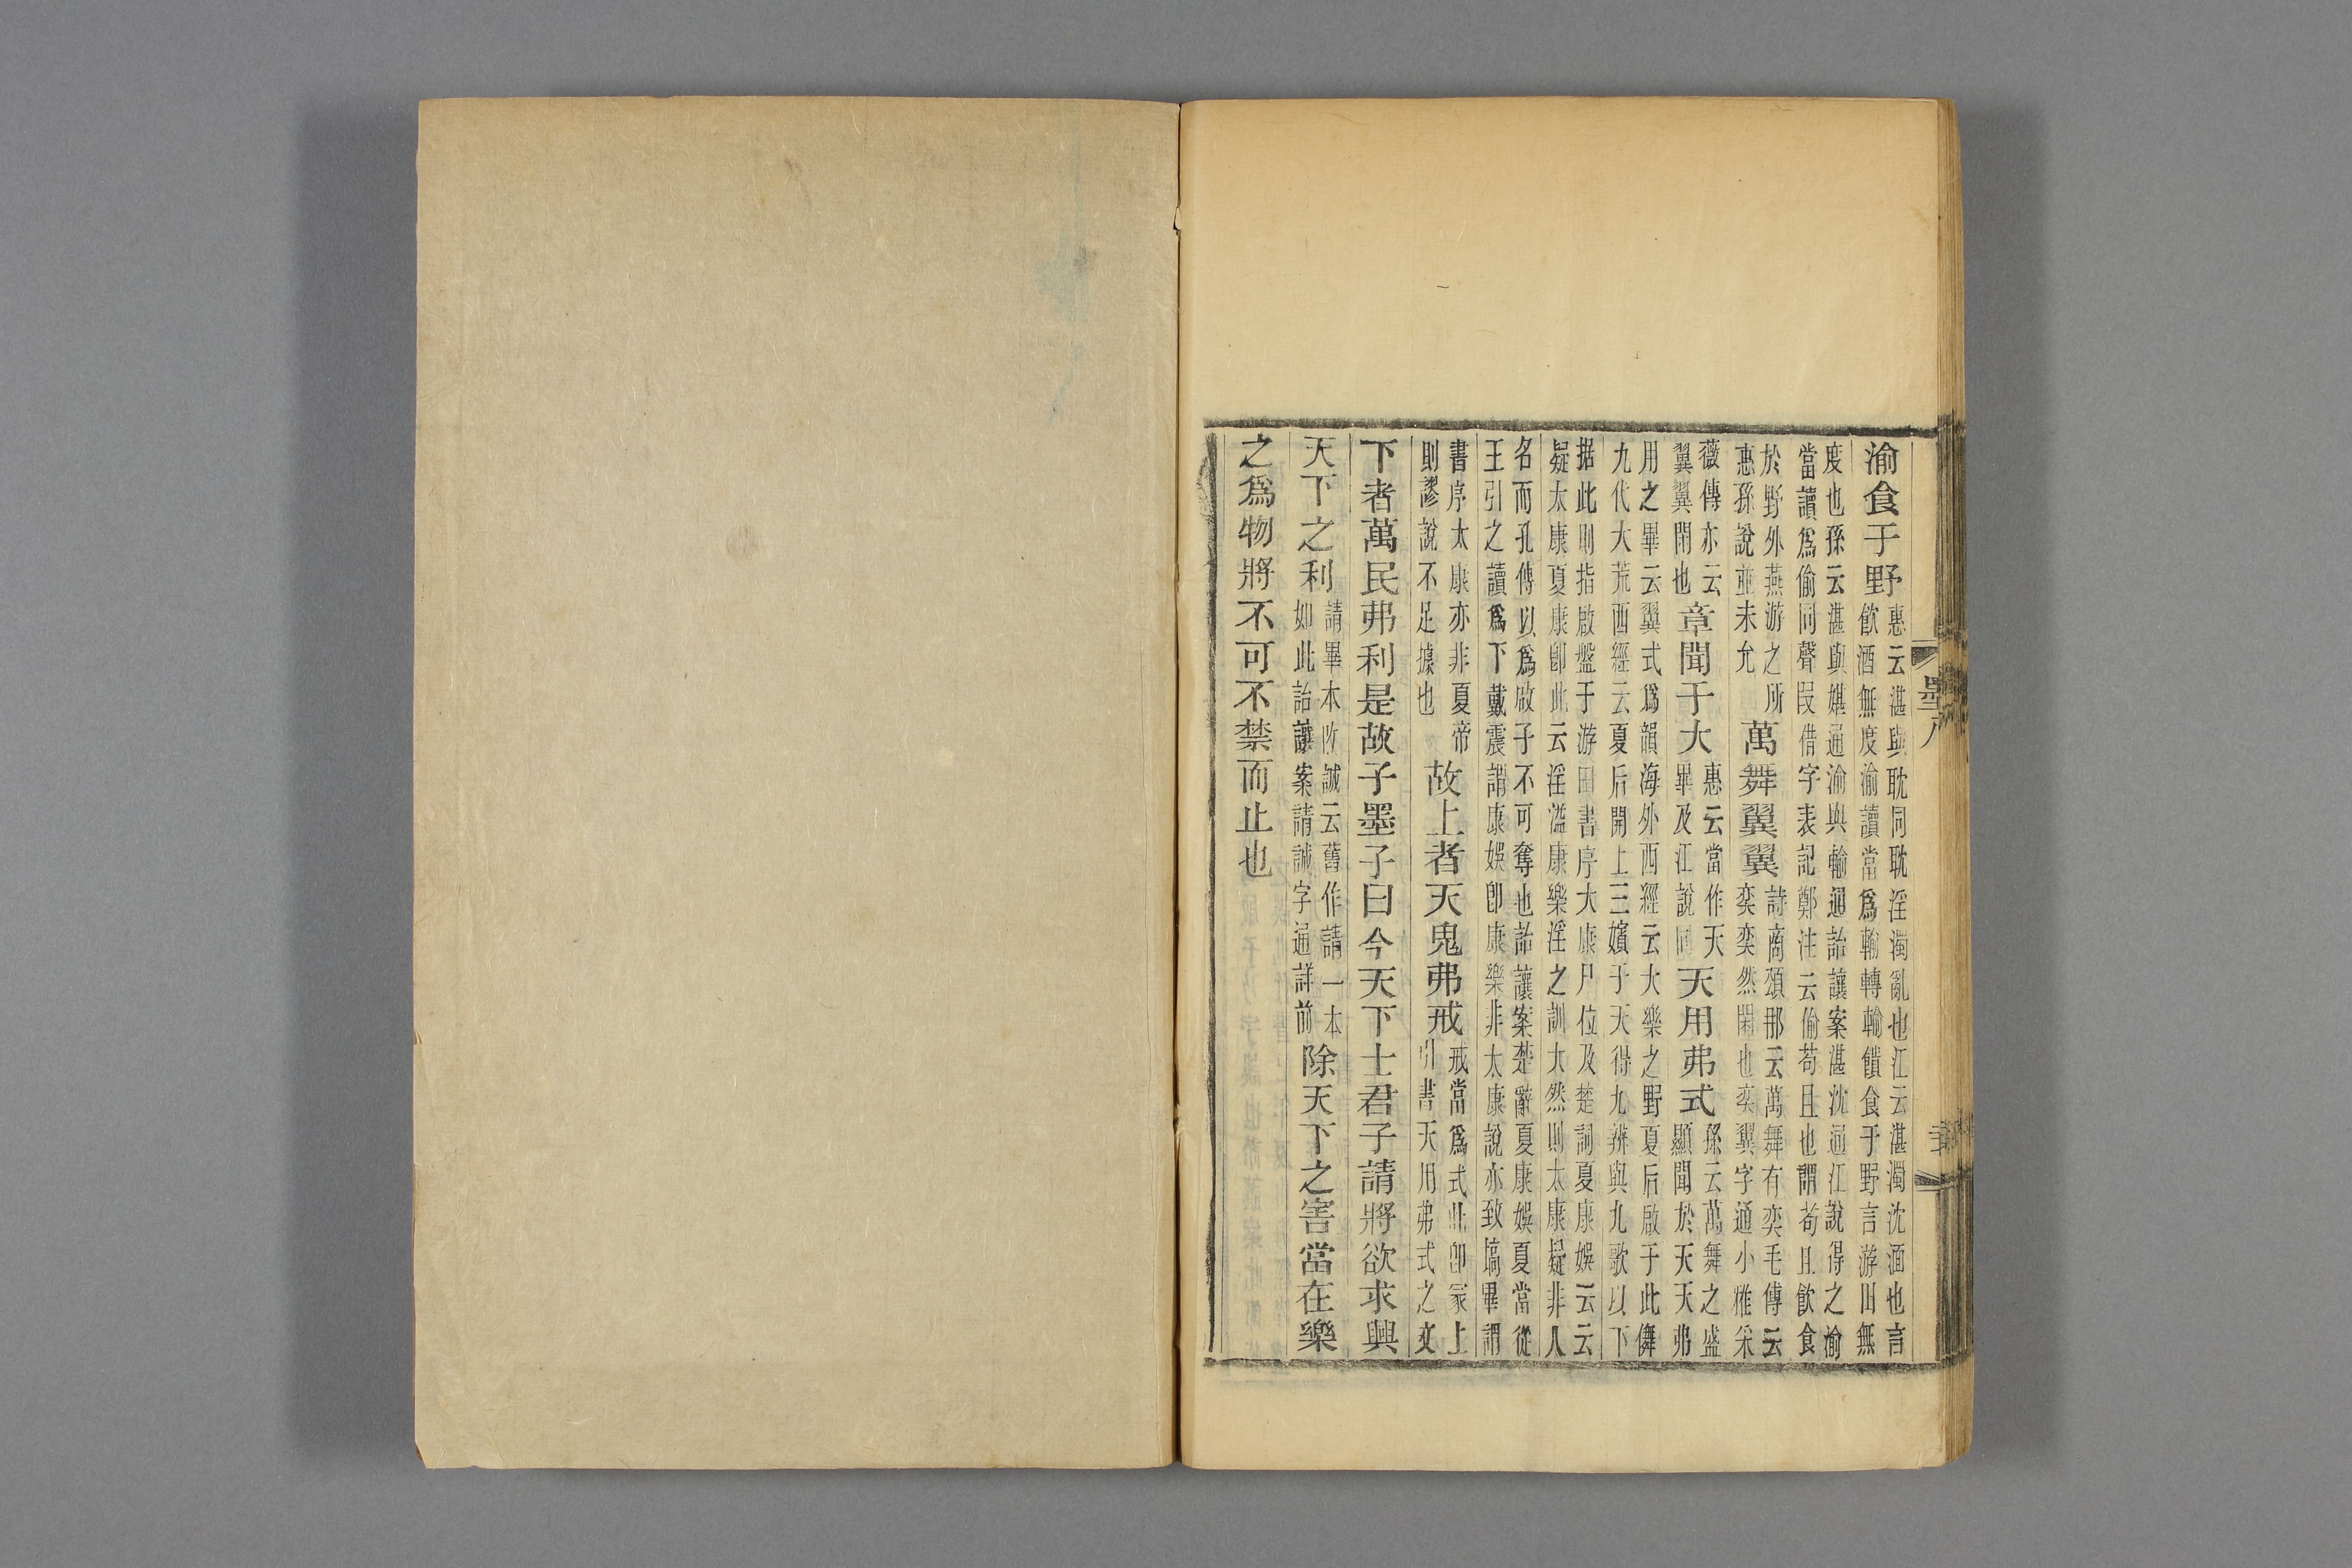 渝食于野惠云湛與耽同耽淫濁亂也江云湛濁沈湎也言飲酒無度渝讀當爲輸轉輸饋食于野言游田無
度也孫云湛與媅通渝與輸通詒讓案湛沈通江說得之渝當讀爲偷同聲叚借字表記鄭注云偷苟且也謂苟且飲食
於野外燕游之所惠孫說並未允萬舞翼翼詩商頌那云萬舞有奕毛傳云奕奕然閑也奕翼字通小雅采
薇傳亦云翼翼閑也章聞于大惠云當作天畢及江說同天用弗式孫云萬舞之盛顯聞於天天弗
用之畢云翼式爲韻海外西經云大樂之野夏后啟于此儛九代大荒西經云夏后開上三嬪于天得九辨與九歌以下
据此則指啟盤于游田書序大康尸位及楚詞夏康娛云云疑太康夏康卽此云淫溢康樂淫之訓大然則太康疑非人
名而孔傳以爲啟子不可奪也詒讓案楚辭夏康娛夏當從王引之讀爲下戴震謂康娛卽康樂非太康說亦致塙畢謂
書序太康亦非夏帝則謬說不足據也故上者天鬼弗戒戒當爲式此卽冢上引書天用弗式之文
下者萬民弗利是故子墨子曰今天下士君子請將欲求興
天下之利請畢本改誠云舊作請一本如此詒讓案請誠字通詳前除天下之害當在樂
之爲物將不可不禁而止也
墨八